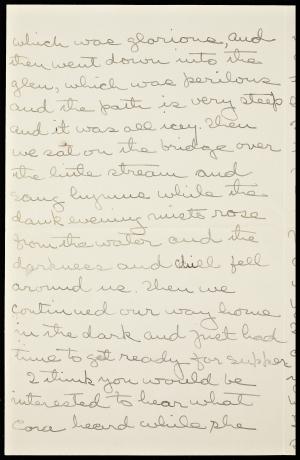 which was glorious, and
then went down into the
glen, which was perilous
and the path is very steep
and it was all icy. Then
we sat on the bridge over
the little stream and
sang hymns while the
dank evening mists rose
from the water and the
darkness and chill fell
around us. Then we
continued our way home
in the dark and just had
time to get ready for supper
I think you would be
interested to hear what
Cora heard while she